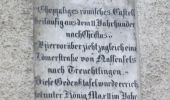 Ehemaliges römisches Castell
beiläufig aus dem II. Jahrhundert
nach Christus.
Hier vorüber zieht zugleich eine
Römerstraße von Nassenfels
nach Treuchtlingen.
Diese Gedenktafel wurde errich
tet unter König Max II. im Jahr